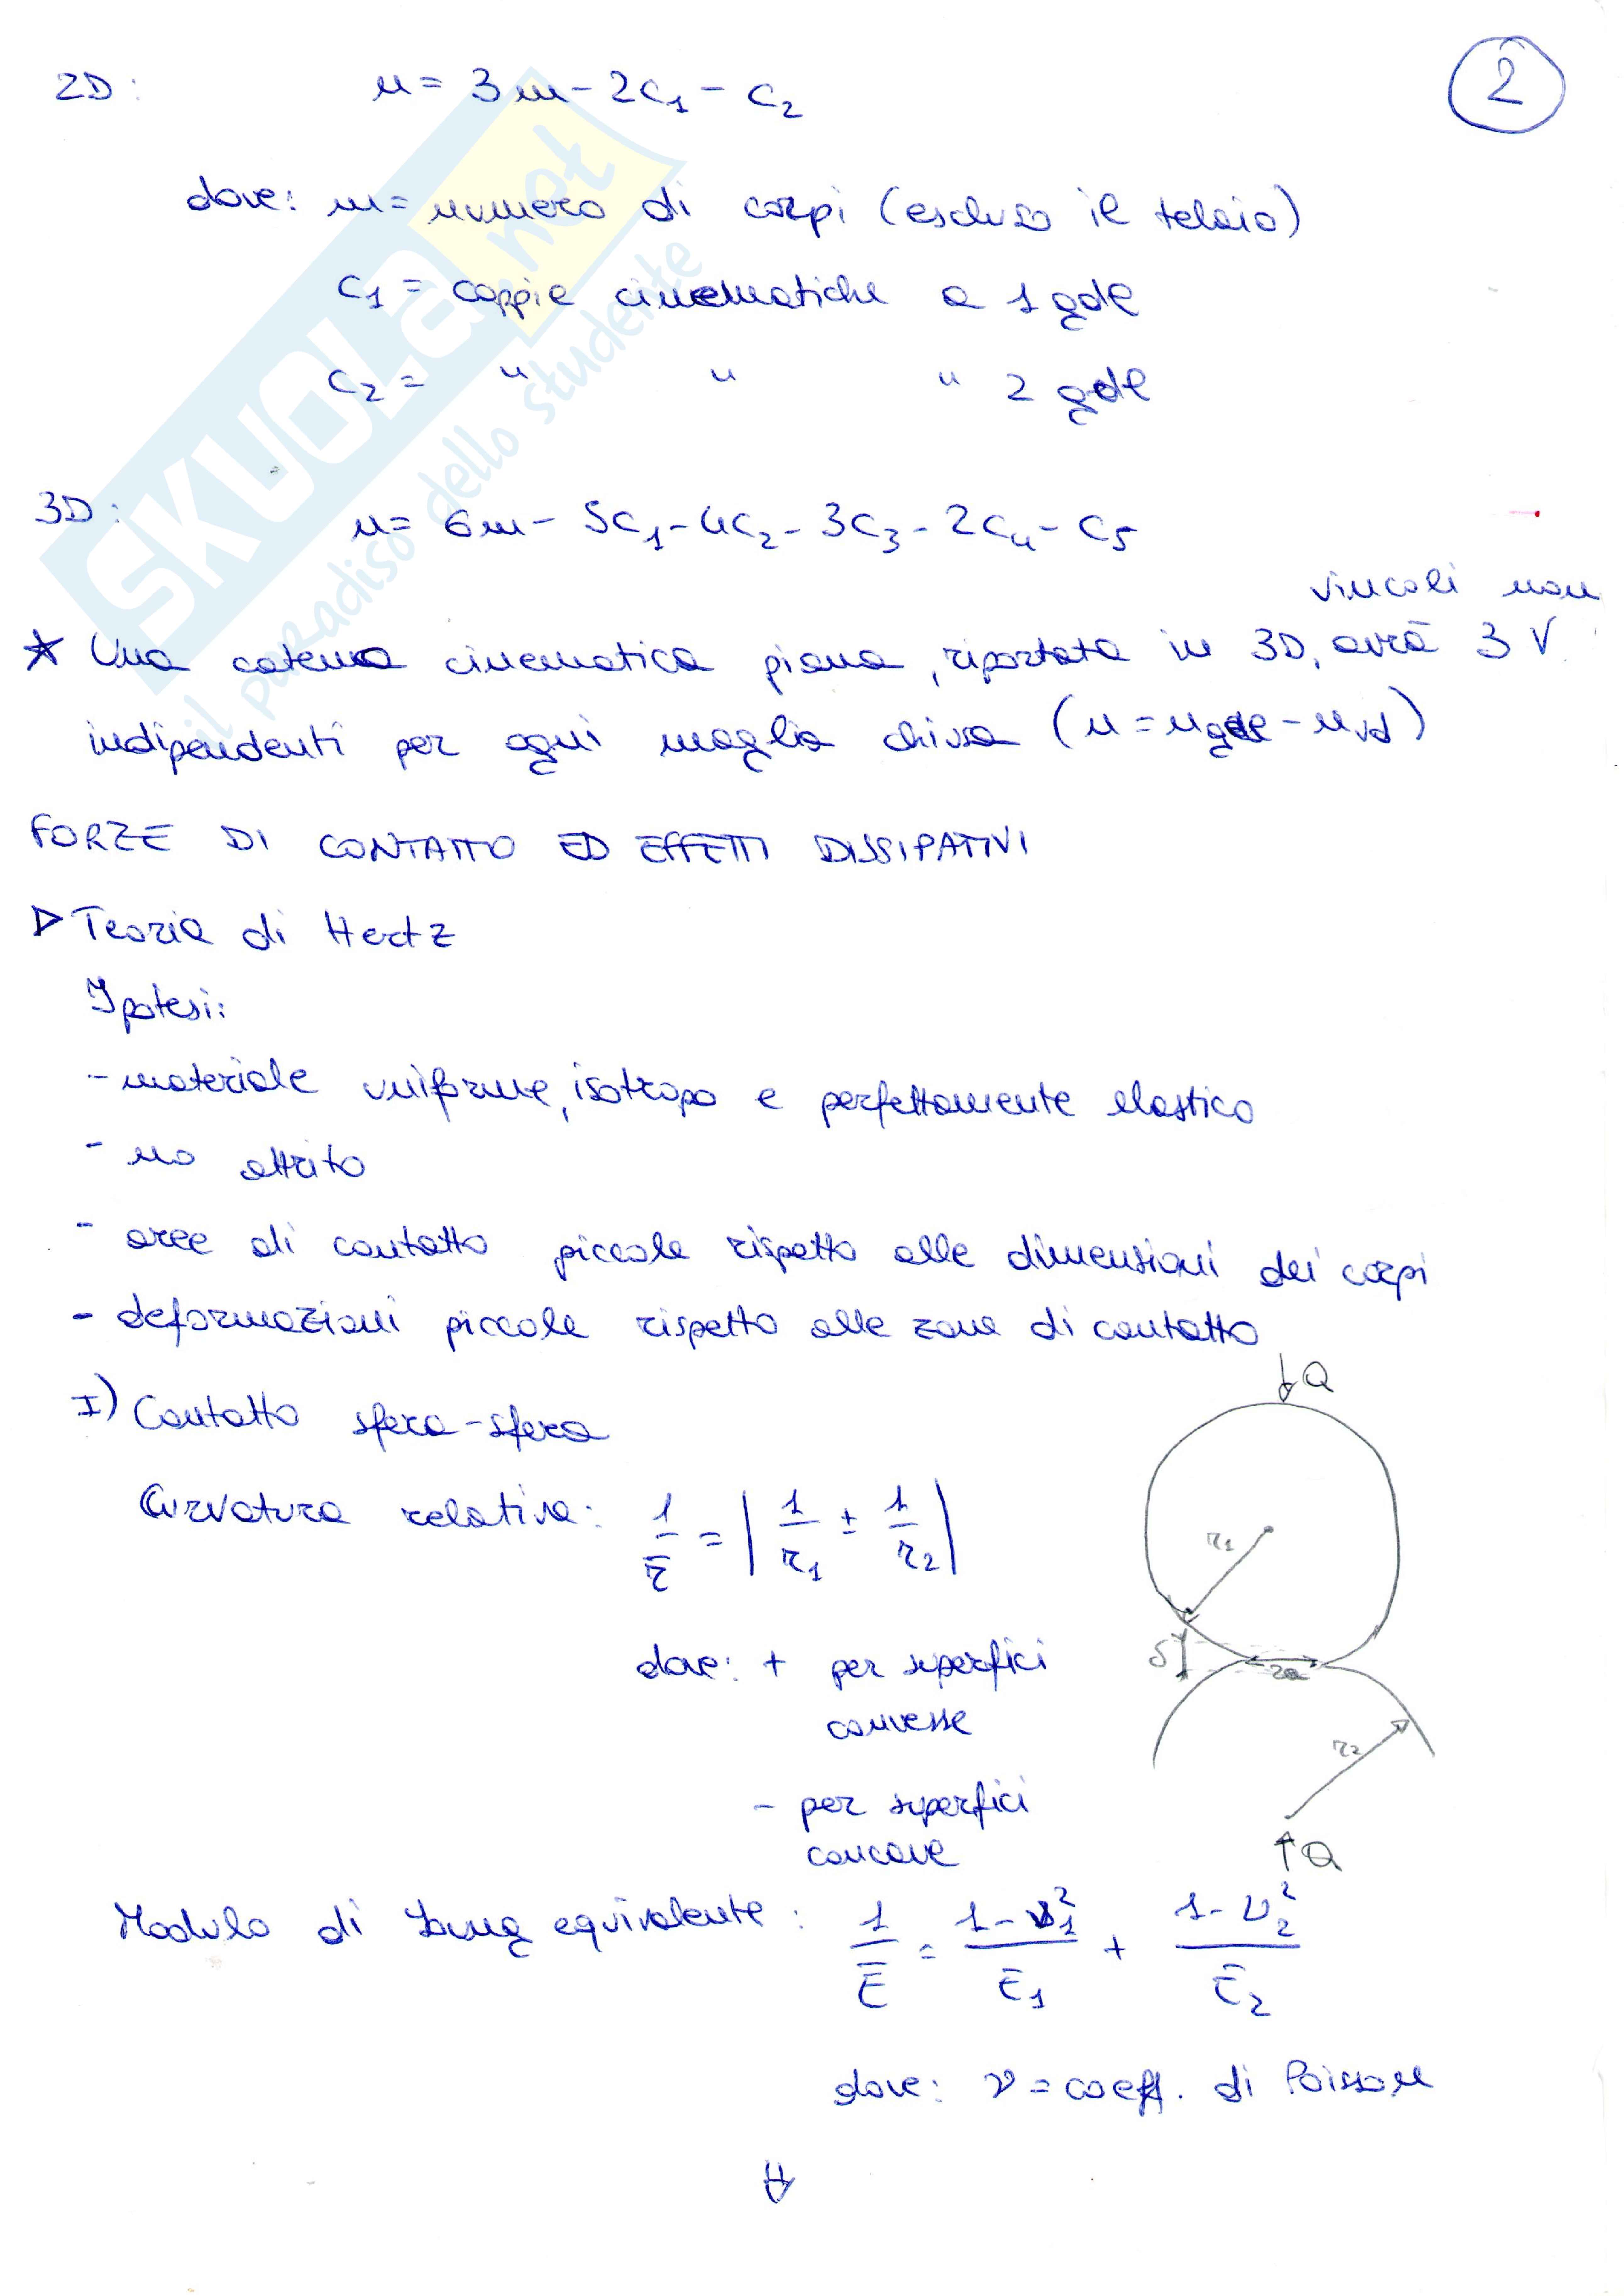 2
2D: n = 3m - 2c₁ - c₂
dove: m = numero di corpi (escluso il telaio)
c₁ = coppie cinematiche a 1 gdl
c₂ = " " " 2 gdl
3D: n = 6m - 5c₁ - 4c₂ - 3c₃ - 2c₄ - c₅
vincoli non
* Una catena cinematica piana, riportata in 3D, avrà 3 V
indipendenti per ogni maglia chiusa (n = n_gdl - n_vd)
FORZE DI CONTATTO ED EFFETTI DISSIPATIVI
▷ Teoria di Hertz
Ipotesi:
- materiale uniforme, isotropo e perfettamente elastico
- no attrito
- aree di contatto piccole rispetto alle dimensioni dei corpi
- deformazioni piccole rispetto alle zone di contatto
↓Q
I) Contatto sfera-sfera
Curvatura relativa: 1/r̄ = | 1/r₁ ± 1/r₂ |
r₁
dove: + per superfici
convesse
δ 2a
r₂
- per superfici
concave
↑Q
Modulo di Young equivalente: 1/Ē = (1-ν₁²)/E₁ + (1-ν₂²)/E₂
dove: ν = coeff. di Poisson
⇓
SKUOLA.net
il paradiso dello studente